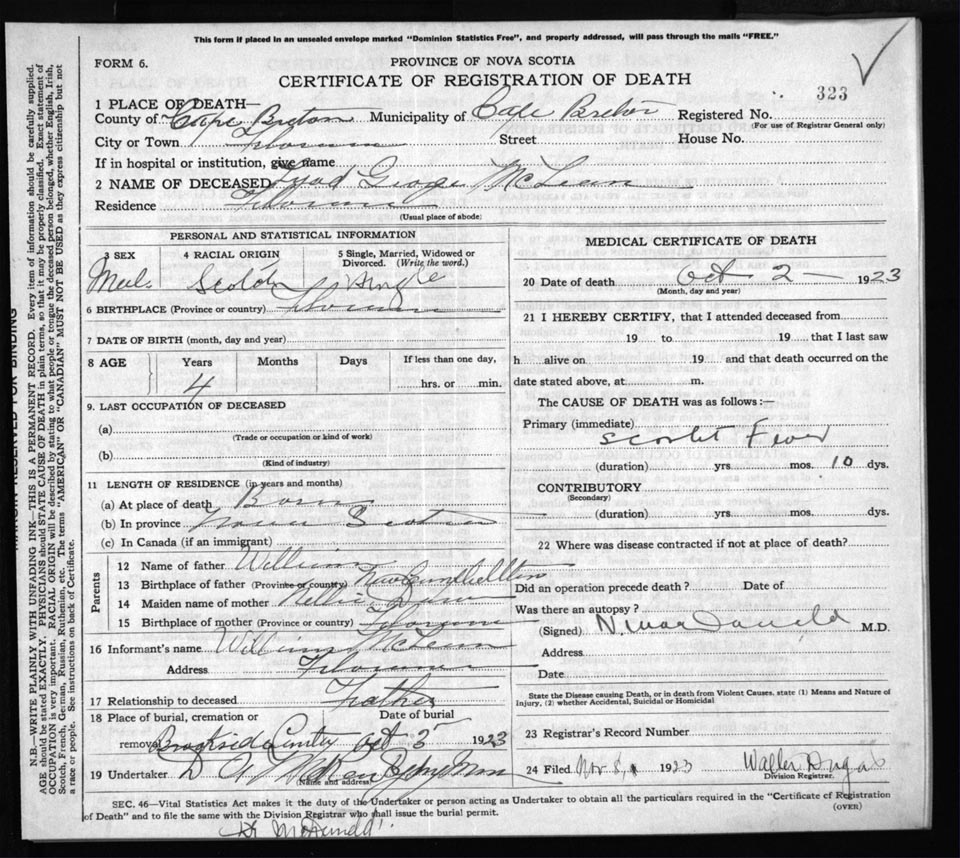 This form if placed in an unsealed envelope marked "Dominion Statistics Free", and properly addressed, will pass through the mails "FREE."
FORM 6.
PROVINCE OF NOVA SCOTIA
CERTIFICATE OF REGISTRATION OF DEATH
323
1 PLACE OF DEATH—
County of Cape Breton Municipality of Cape Breton Registered No.
(For use of Registrar General only)
City or Town Street House No.
If in hospital or institution, give name
2 NAME OF DECEASED George McLean
Residence
(Usual place of abode)
PERSONAL AND STATISTICAL INFORMATION
3 SEX 4 RACIAL ORIGIN 5 Single, Married, Widowed or Divorced. (Write the word.)
Male Scotch Single
6 BIRTHPLACE (Province or country)
7 DATE OF BIRTH (month, day and year)
8 AGE Years Months Days If less than one day,
4 hrs. or min.
9. LAST OCCUPATION OF DECEASED
(a)
(Trade or occupation or kind of work)
(b)
(Kind of industry)
11 LENGTH OF RESIDENCE (in years and months)
(a) At place of death Born
(b) In province Nova Scotia
(c) In Canada (if an immigrant)
Parents
12 Name of father William
13 Birthplace of father (Province or country)
14 Maiden name of mother Nellie
15 Birthplace of mother (Province or country)
16 Informant's name William McLean
Address
17 Relationship to deceased Father
18 Place of burial, cremation or removal Date of burial
Brookside Oct 3 1923
19 Undertaker
(Name and address)
MEDICAL CERTIFICATE OF DEATH
20 Date of death Oct 2 — 1923
(Month, day and year)
21 I HEREBY CERTIFY, that I attended deceased from
19 to 19 that I last saw
h alive on 19 and that death occurred on the
date stated above, at m.
The CAUSE OF DEATH was as follows:—
Primary (immediate)
Scarlet Fever
(duration) yrs. mos. 10 dys.
CONTRIBUTORY
(Secondary)
(duration) yrs. mos. dys.
22 Where was disease contracted if not at place of death?
Did an operation precede death? Date of
Was there an autopsy?
(Signed) M.D.
Address
Date
State the Disease causing Death, or in death from Violent Causes, state (1) Means and Nature of
Injury, (2) whether Accidental, Suicidal or Homicidal
23 Registrar's Record Number
24 Filed Nov 8, 1923 Walter
Division Registrar.
SEC. 46—Vital Statistics Act makes it the duty of the Undertaker or person acting as Undertaker to obtain all the particulars required in the "Certificate of Registration
of Death" and to file the same with the Division Registrar who shall issue the burial permit.
(OVER)
MARGIN RESERVED FOR BINDING
N.B.—WRITE PLAINLY WITH UNFADING INK—THIS IS A PERMANENT RECORD. Every item of information should be carefully supplied.
AGE should be stated EXACTLY. PHYSICIANS should STATE CAUSE OF DEATH in plain terms, so that it may be properly classified. Exact statement of
OCCUPATION is very important. RACIAL ORIGIN will be described by stating to what people or tongue the deceased person belonged, whether English, Irish,
Scotch, French, German, Russian, Ruthenian, etc. The terms "AMERICAN" OR "CANADIAN" MUST NOT BE USED as they express citizenship but not
a race or people. See instructions on back of Certificate.